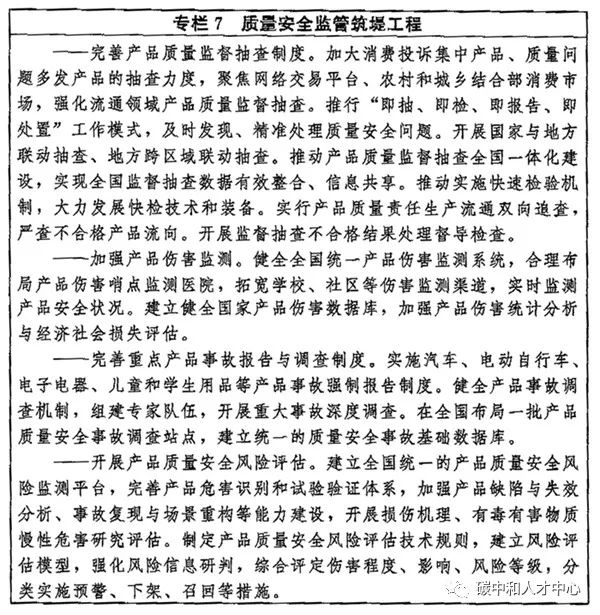 专栏7 质量安全监管筑堤工程
——完善产品质量监督抽查制度。加大消费投诉集中产品、质量问
题多发产品的抽查力度，聚焦网络交易平台、农村和城乡结合部消费市
场，强化流通领域产品质量监督抽查。推行“即抽、即检、即报告、即
处置”工作模式，及时发现、精准处理质量安全问题。开展国家与地方
联动抽查、地方跨区域联动抽查。推动产品质量监督抽查全国一体化建
设，实现全国监督抽查数据有效整合、信息共享。推动实施快速检验机
制，大力发展快检技术和装备。实行产品质量责任生产流通双向追查，
严查不合格产品流向。开展监督抽查不合格结果处理督导检查。
——加强产品伤害监测。健全全国统一产品伤害监测系统，合理布
局产品伤害哨点监测医院，拓宽学校、社区等伤害监测渠道，实时监测
产品安全状况。建立健全国家产品伤害数据库，加强产品伤害统计分析
与经济社会损失评估。
——完善重点产品事故报告与调查制度。实施汽车、电动自行车、
电子电器、儿童和学生用品等产品事故强制报告制度。健全产品事故调
查机制，组建专家队伍，开展重大事故深度调查。在全国布局一批产品
质量安全事故调查站点，建立统一的质量安全事故基础数据库。
——开展产品质量安全风险评估。建立全国统一的产品质量安全风
险监测平台，完善产品危害识别和试验验证体系，加强产品缺陷与失效
分析、事故复现与场景重构等能力建设，开展损伤机理、有毒有害物质
慢性危害研究评估。制定产品质量安全风险评估技术规则，建立风险评
估模型，强化风险信息研判，综合评定伤害程度、影响、风险等级，分
类实施预警、下架、召回等措施。
碳中和人才中心